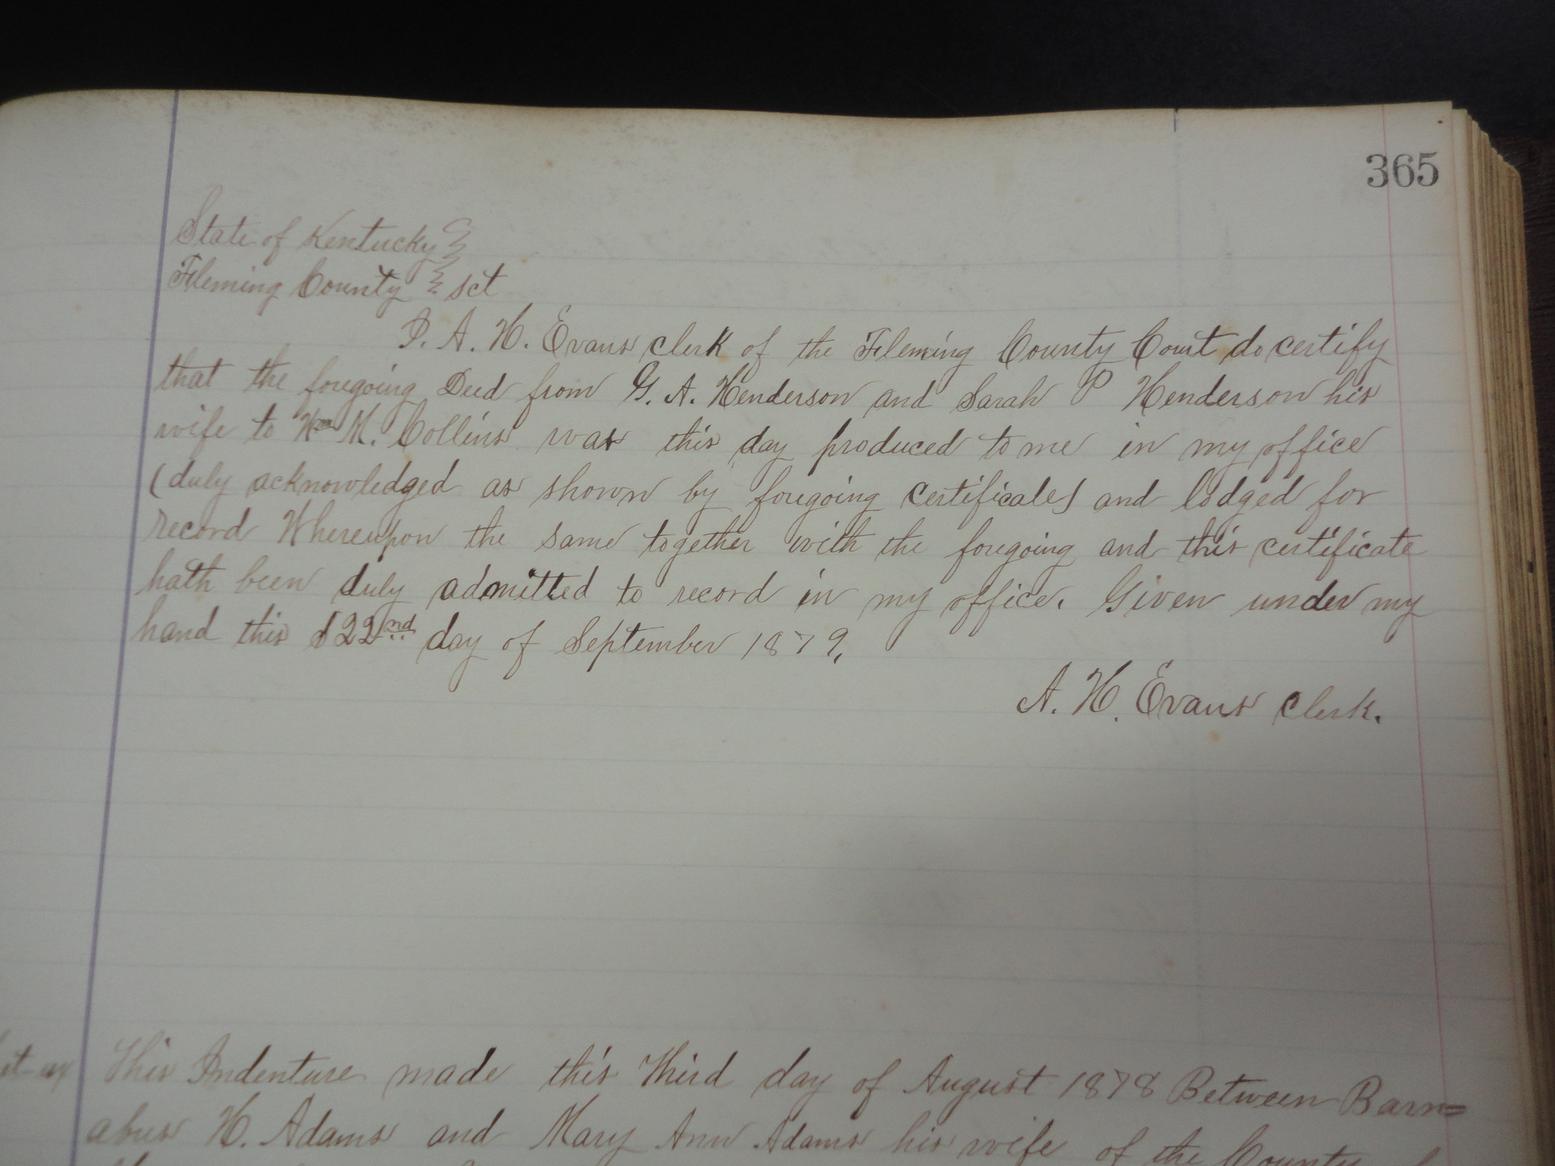 365
State of Kentucky }
Fleming County } sct
I. A. H. Evans clerk of the Fleming County Court do certify
that the foregoing Deed from G. A. Henderson and Sarah P Henderson his
wife to Wm M. Collins was this day produced to me in my office
(duly acknowledged as shown by foregoing certificate) and lodged for
record Whereupon the same together with the foregoing and this certificate
hath been duly admitted to record in my office. Given under my
hand this 22nd day of September 1879.
A. H. Evans Clerk.
This Indenture made this Third day of August 1878 Between Barn=
abus H. Adams and Mary Ann Adams his wife of the County